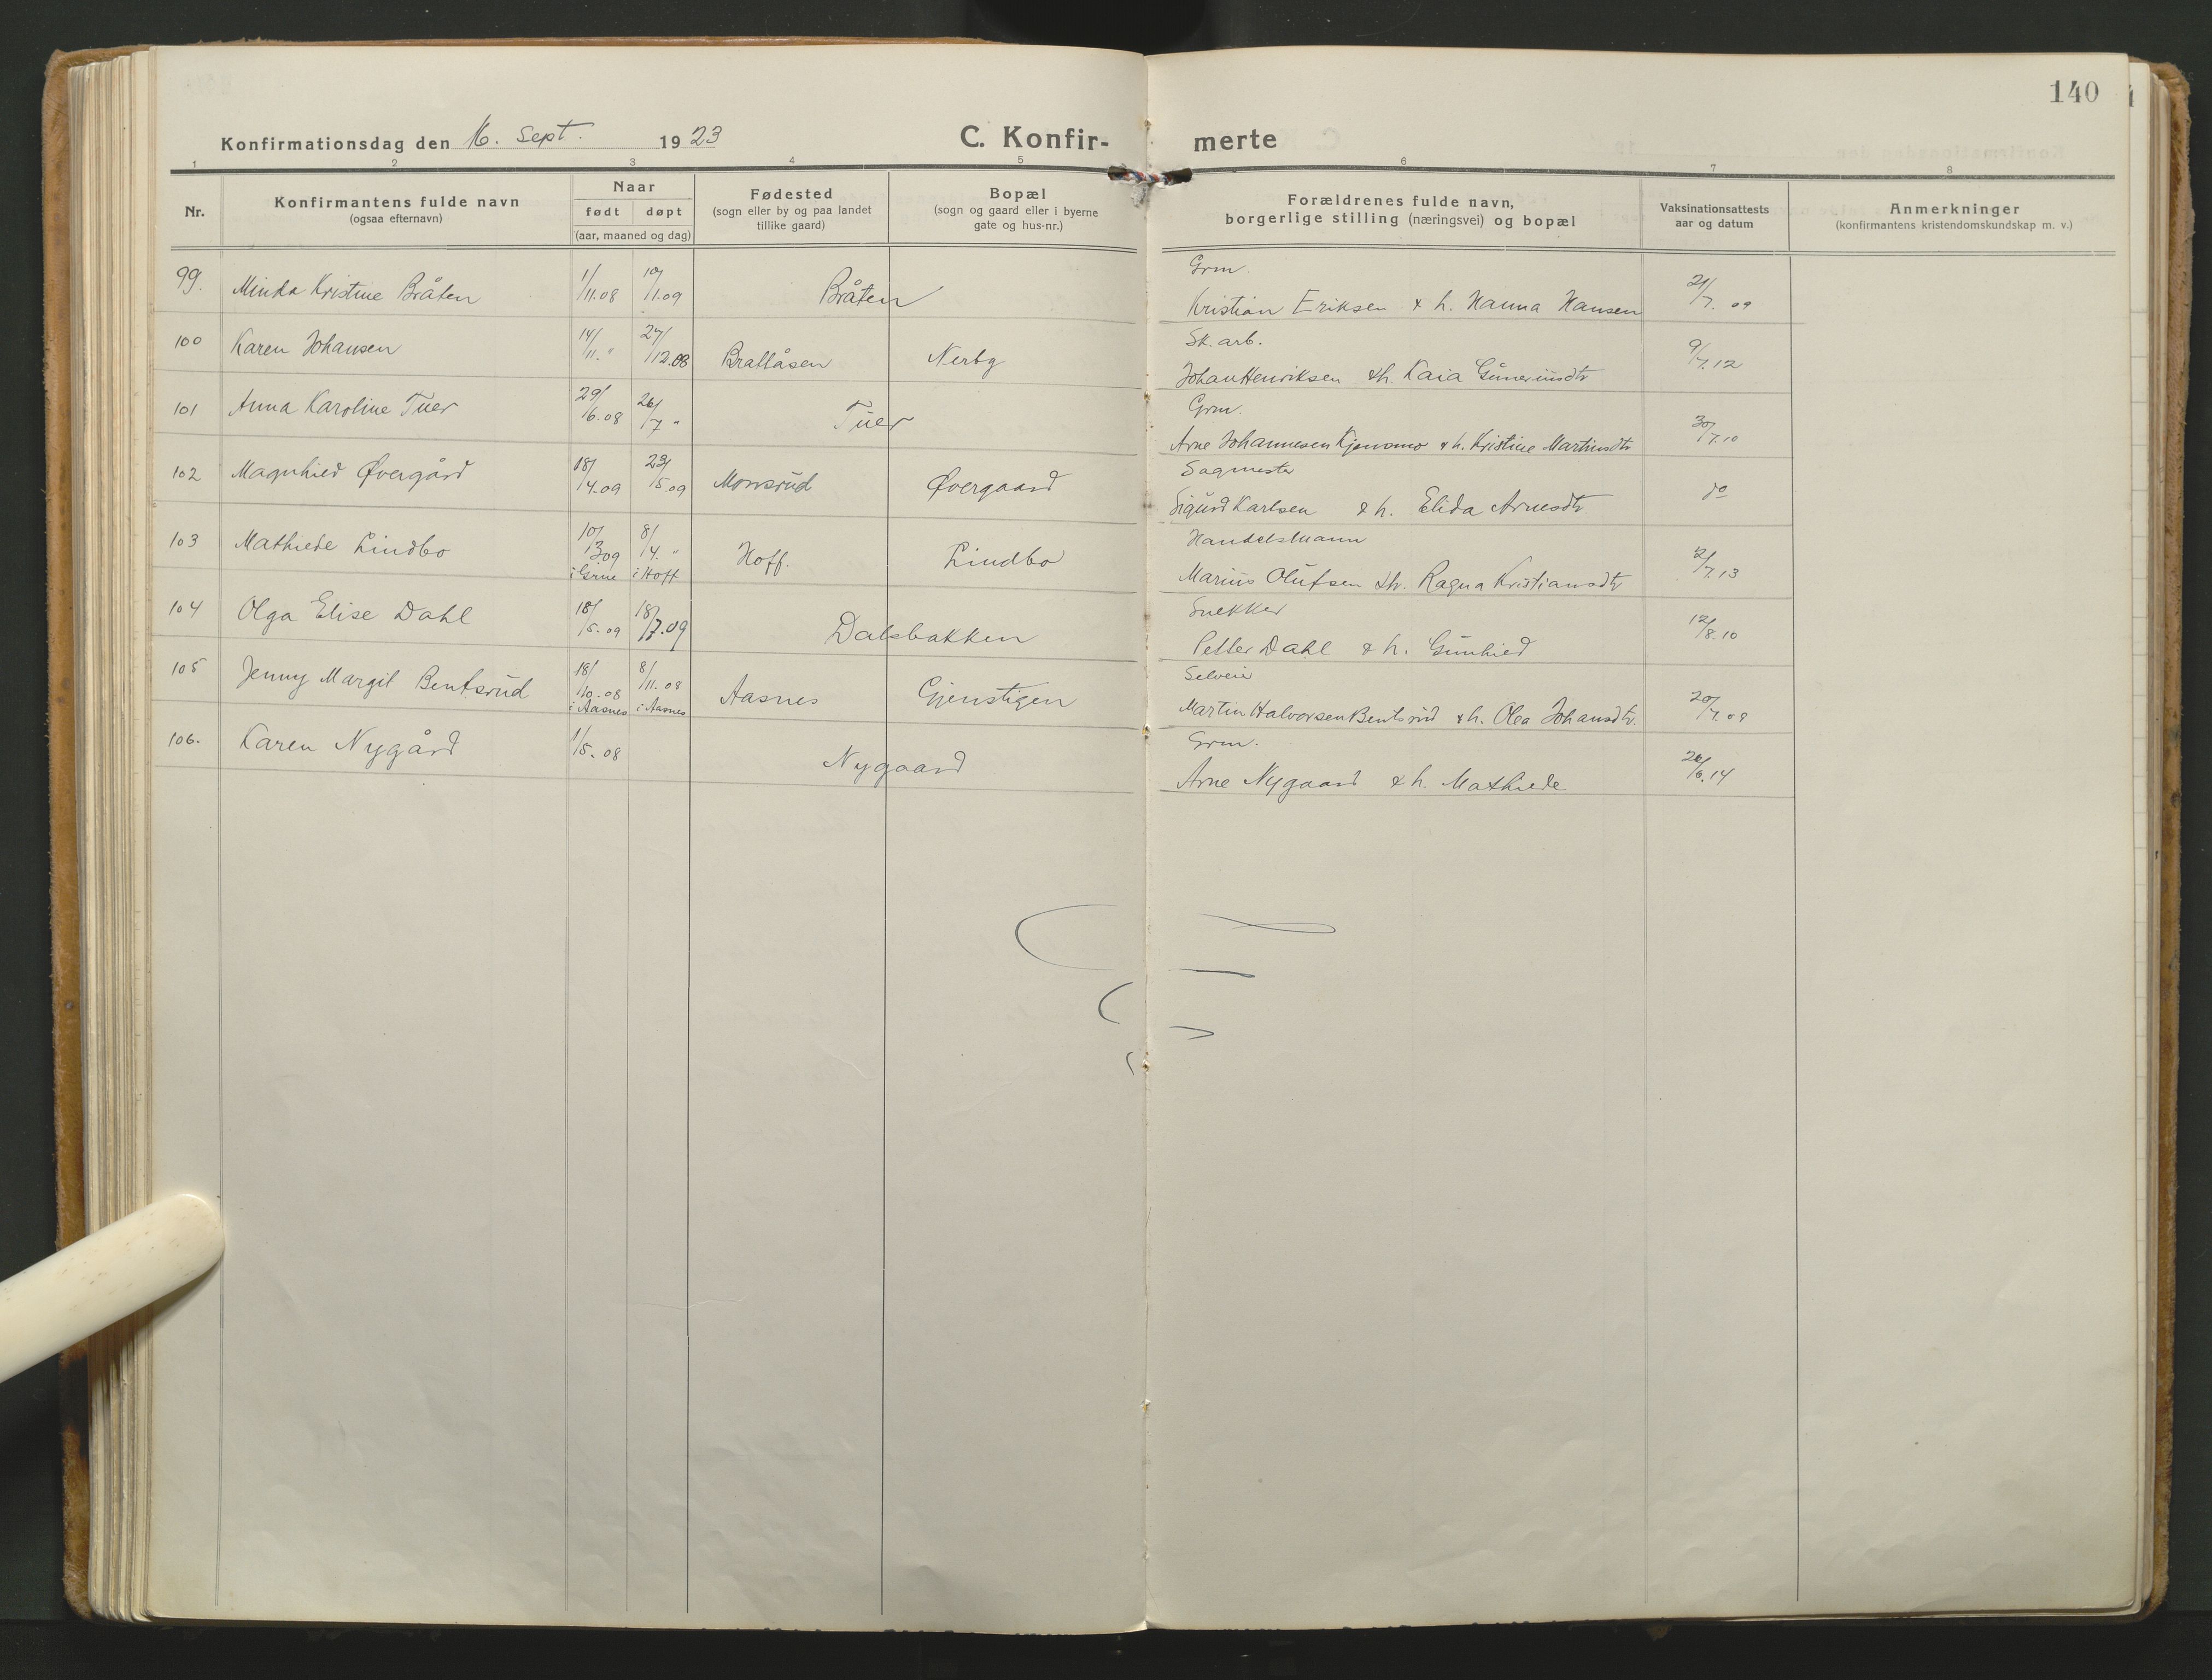 140
Konfirmationsdag den 16. Sept. 1923 C. Konfir- merte
1 2 3 4 5 6 7 8
Nr. Konfirmantens fulde navn (ogsaa efternavn) Naar født døpt (aar, maaned og dag) Fødested (sogn eller by og paa landet tillike gaard) Bopæl (sogn og gaard eller i byerne gate og hus-nr.) Forældrenes fulde navn, borgerlige stilling (næringsvei) og bopæl Vaksinationsattests aar og datum Anmerkninger (konfirmantens kristendomskundskap m. v.)
Grm.
99. Minda Kristine Bråten 1/11.08 10/1.09 Bråten Kristian Eriksen & h. Hanna Hansen 21/7.09
Sk. arb.
100 Karen Johansen 14/11. " 27/12.08 Brattåsen Nerby Johan Henriksen & h. Kaia Guneriusdtr 9/7.12
Grm.
101 Anna Karoline Tuer 29/6.08 26/7 " Tuer Arne Johannesen Kjenomo & h. Kristine Martinsdtr 30/7.10
Sagmester
102 Magnhied Øvergård 18/4.09 23/5.09 Monsrud Øvergaard Sigurd Karlsen & h. Elida Arnesdtr do
Handelsmann
103 Mathiede Lindbo 10/3 09 i Grue 8/4. " i Hoff Hoff. Lindbo Marius Olufsen & h. Ragna Kristiansdtr 2/7.13
Snekker
104 Olga Elise Dahl 18/5.09 18/7.09 Dalsbakken Petter Dahl & h. Gunhied 12/8.10
Selveier
105 Jenny Margit Bentsrud 18/10.08 i Aasnes 8/11.08 i Aasnes Aasnes Gjenstigen Martin Halvorsen Bentsrud & h. Olea Johansdtr. 20/7.09
Grm.
106. Karen Nygård 1/5.08 Nygaard Arne Nygaard & h. Mathiede 26/6.14